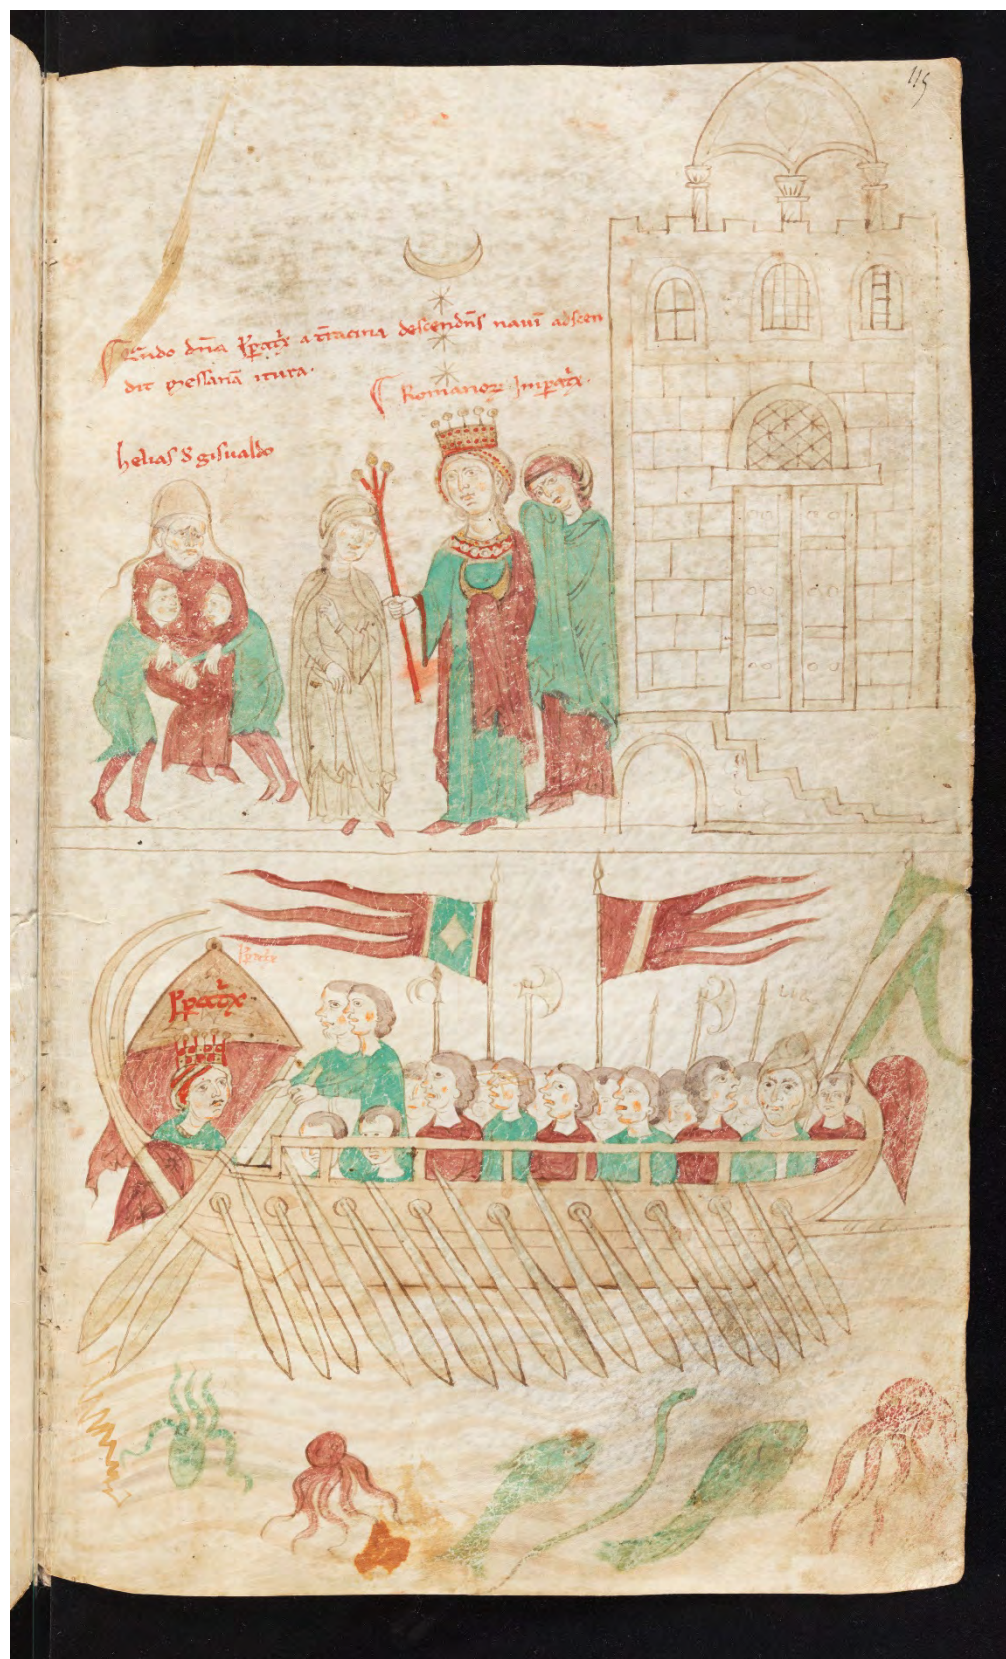 115
Quãdo dña Ip̃atx̃ a t̃racina descendñs navĩ adscen
dit messanã itura.
Romanoꝝ Imp̃atx̃.
helias ð gisualdo
Ip̃atx̃